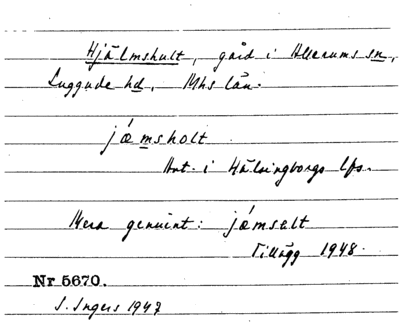 Hjälmshult, gård i Allerums sn,
Luggude hd, Mhs län.
jǽmsholt
Ant. i Hälsingborgs lfs.
Mera genuint: jǽmsalt
Tillägg 1948.
Nr 5670.
I. Ingers 1947